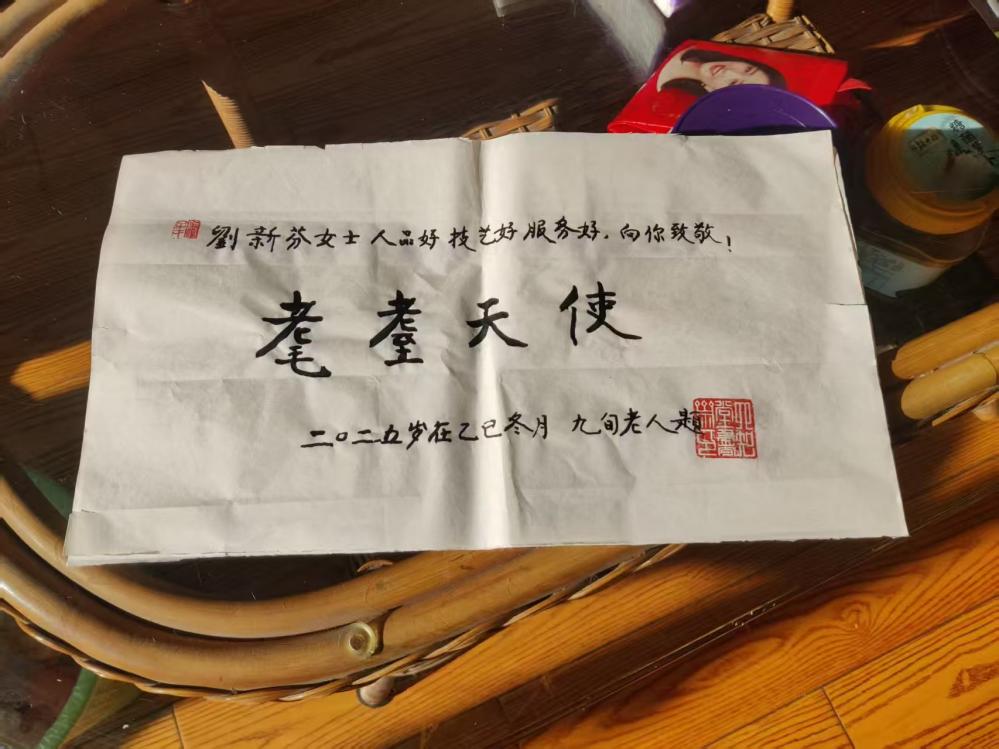 劉新芬女士人品好技艺好服务好，向你致敬！
耄耋天使
二〇二五岁在乙巳冬月 九旬老人题